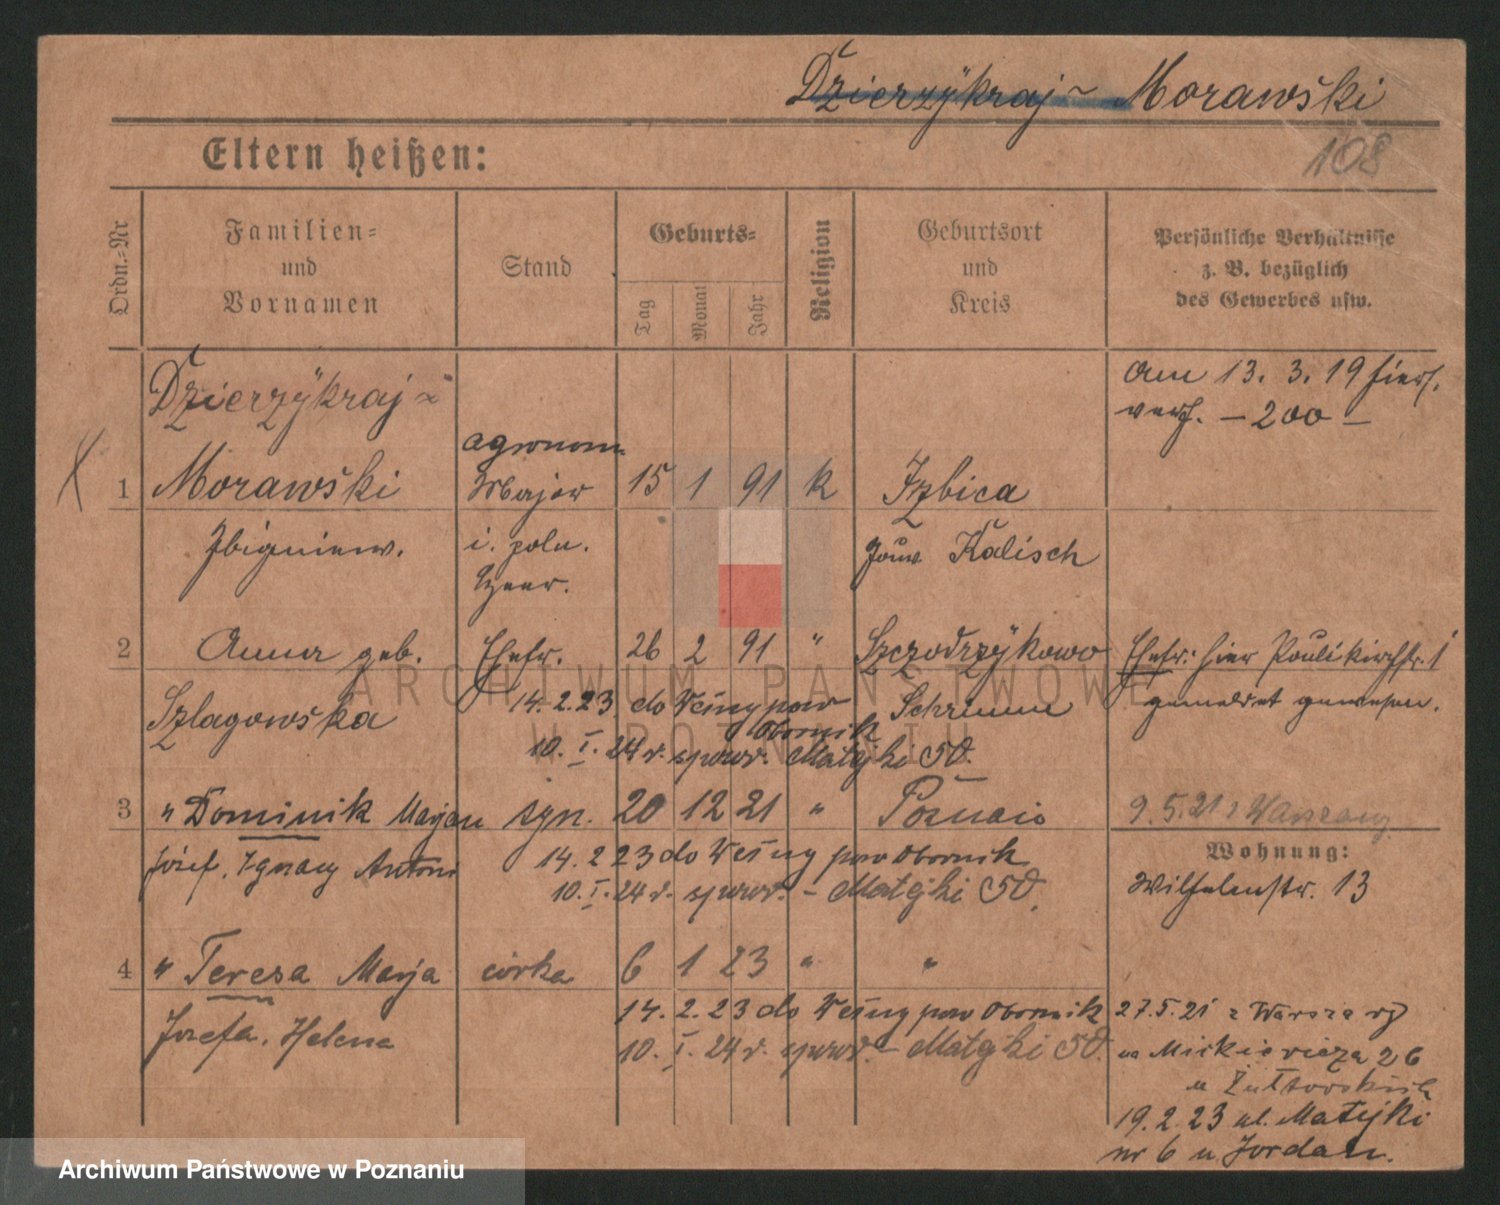 Dzierzykraj-Morawski
Eltern heißen:
108
Ordn.-Nr
Familien-
und
Vornamen
Stand
Geburts-
Tag
Monat
Jahr
Religion
Geburtsort
und
Kreis
Persönliche Verhältnisse
z. B. bezüglich
des Gewerbes usw.
Dzierzykraj-
am 13. 3. 19 hier
– 200 –
agronom
1 Morawski Major 15 1 91 k Izbica
Zbigniew. i. poln. Kalisch
2 Anna geb. Ehefr. 26 2 91 " Szczodrzykowo Ehefr: hier Paulikirchstr. 1
Szlagowska 14. 2. 23. do Schrimm gemeldet gewesen.
Obornik
10. I. 24 r. sprow. Matejki 50.
3 " Dominik Marjan syn. 20 12 21 " Poznań 9. 5. 21 z Warszawy
Wohnung:
Józef, Ignacy Antoni 14. 2 23 do pow Obornik Wilhelmstr. 13
10. I. 24 r. sprow. – Matejki 50.
4 " Teresa Marja córka 6 1 23 " "
14. 2. 23 do pow Obornik 27. 5. 21 z Warszawy
Józefa, Helena 10. I. 24 r. sprow. – Matejki 50. na Mickiewicza 26
u Żółtowskich
19. 2. 23 ul. Matejki
nr 6 u Jordan.
ARCHIWUM PAŃSTWOWE
W POZNANIU
Archiwum Państwowe w Poznaniu